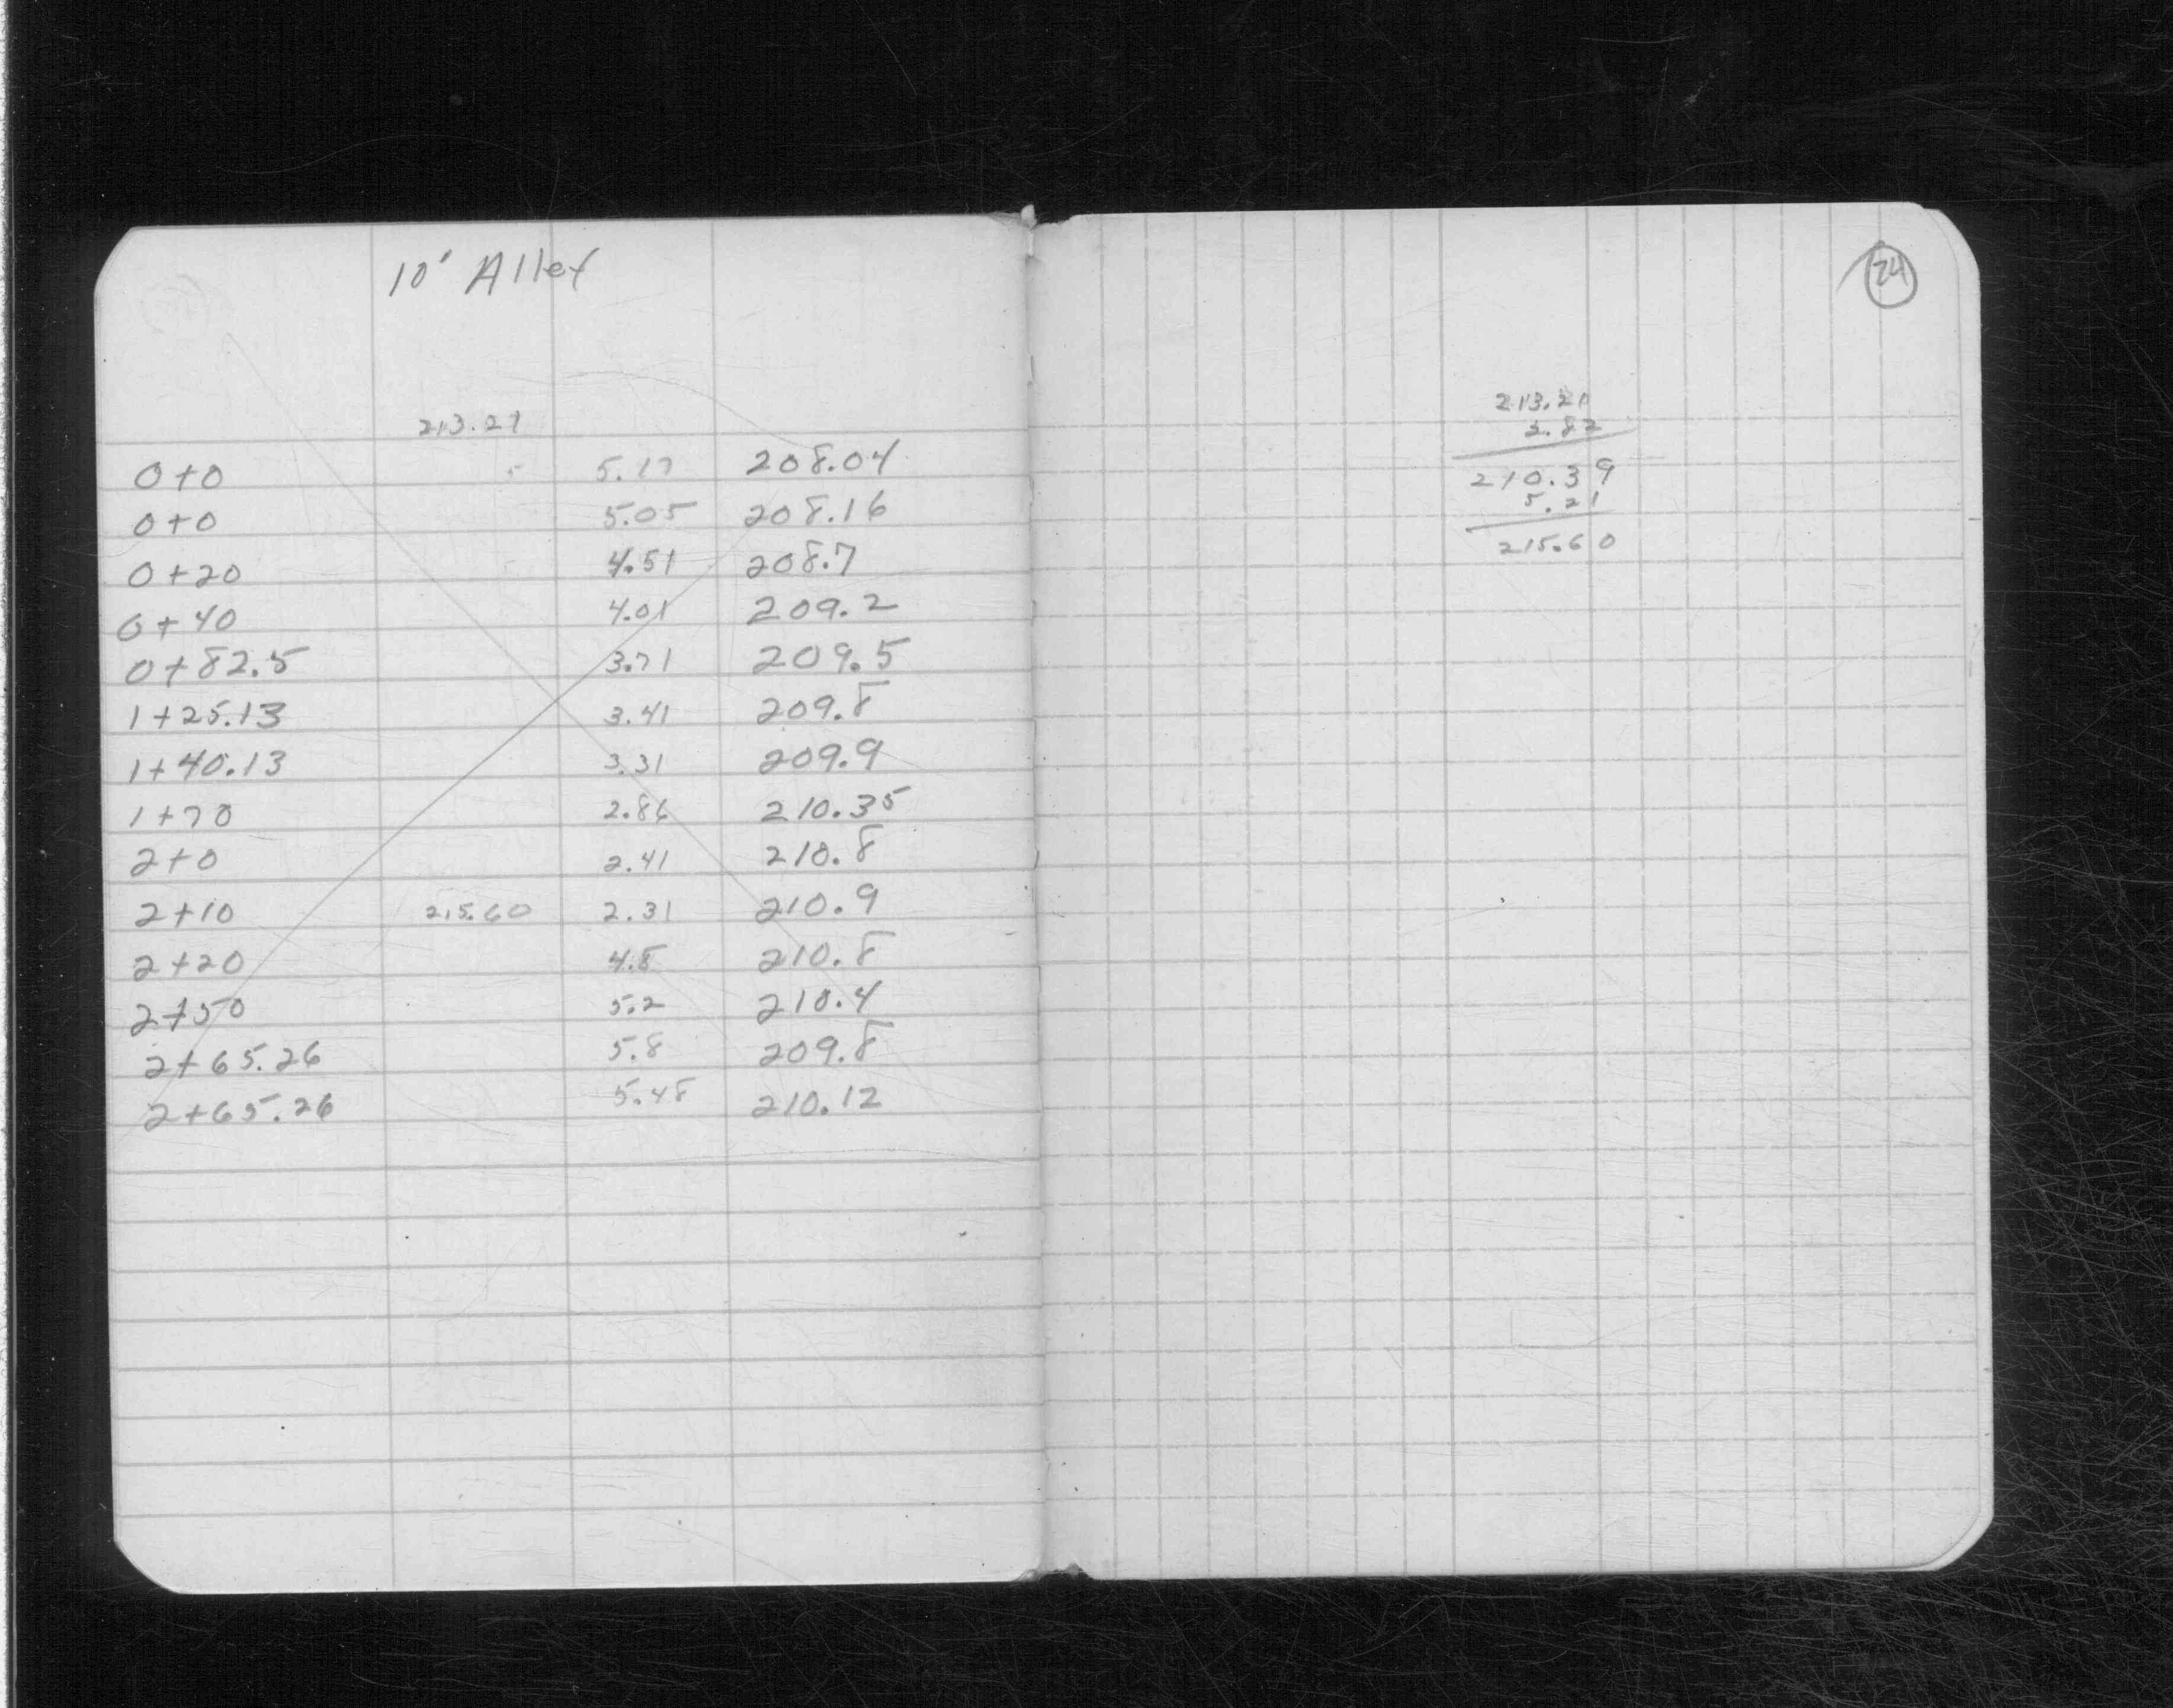 10' Alley
213.21
0+0 5.17 208.04
0+0 5.05 208.16
0+20 4.51 208.7
0+40 4.01 209.2
0+82.5 3.71 209.5
1+25.13 3.41 209.8
1+40.13 3.31 209.9
1+70 2.86 210.35
2+0 2.41 210.8
2+10 215.60 2.31 210.9
2+20 4.8 210.8
2+50 5.2 210.4
2+65.26 5.8 209.8
2+65.26 5.48 210.12
24
213.21
2.82
210.39
5.21
215.60